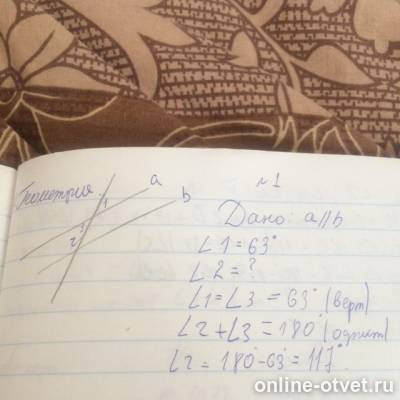 Геометрия.
a
b
№1
1
3
2
Дано: a∥b
∠1=63°
∠2=?
∠1=∠3=63° (верт)
∠2+∠3=180° (одност)
∠2=180°-63°=117°.
online-otvet.ru